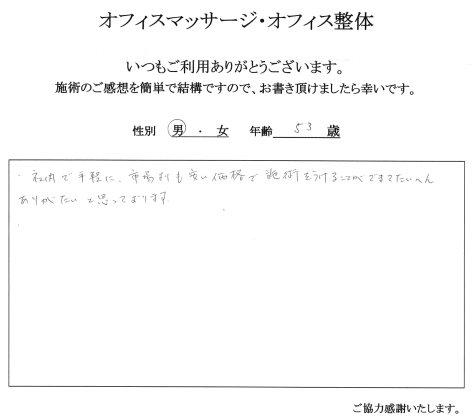 オフィスマッサージ・オフィス整体
いつもご利用ありがとうございます。
施術のご感想を簡単で結構ですので、お書き頂けましたら幸いです。
性別 男 ・ 女 年齢 53 歳
・社内で手軽に、市場よりも安い価格で施術をうけることができてたいへん
ありがたいと思っております。
ご協力感謝いたします。